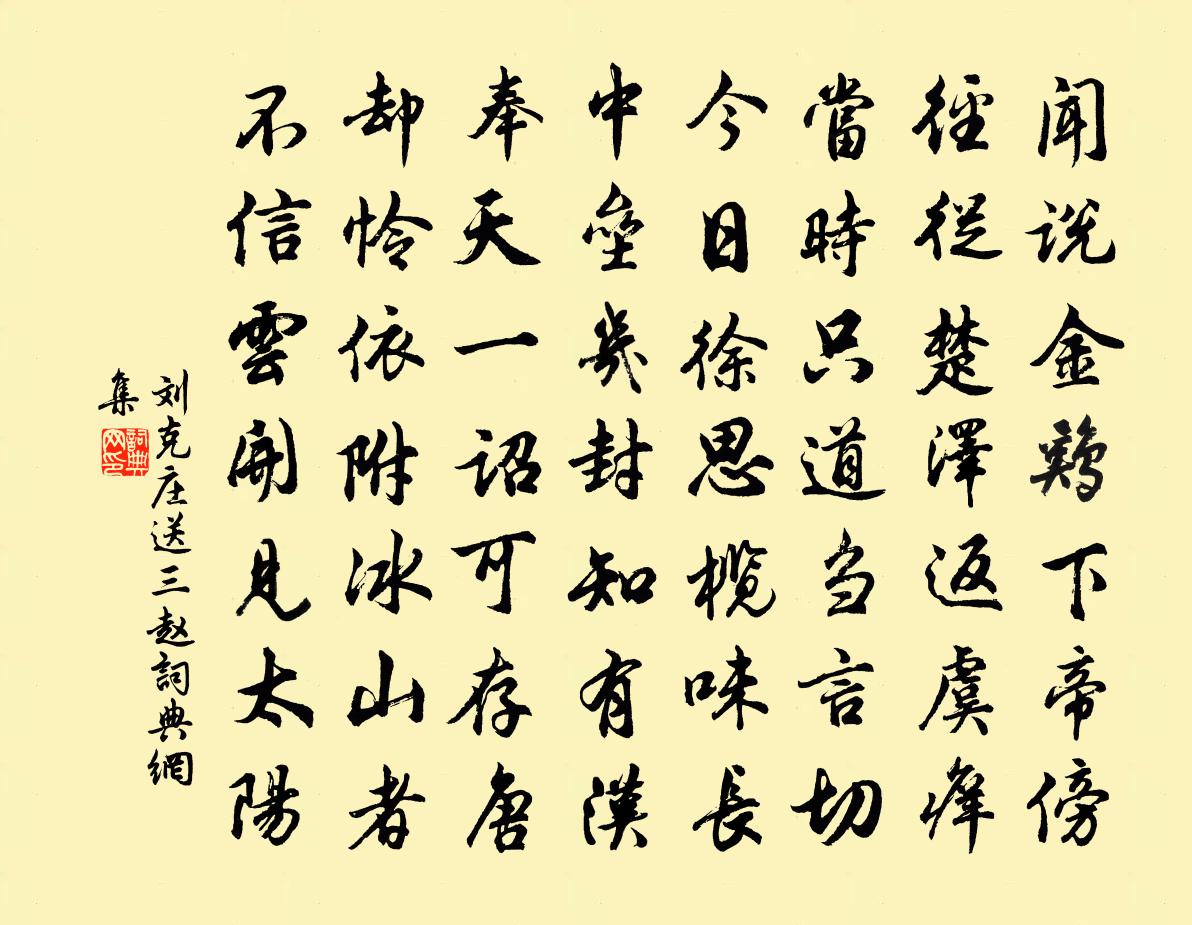 聞説金鷄下帝傍
徑從楚澤返虞庠
當時只道当言切
今日徐思榄味長
中垒幾封知有漢
奉天一詔可存唐
却怜依附冰山者
不信雲開見太陽
刘克庄送三赵詞典網
集
詞典网印